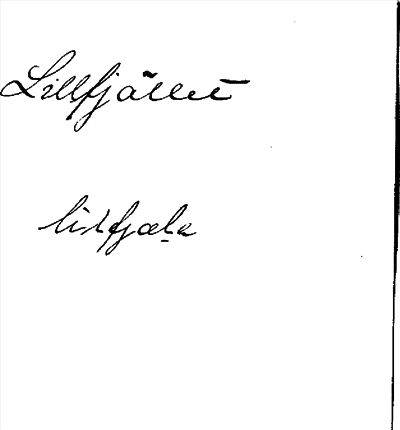 Lillfjället
lislfjæḷa